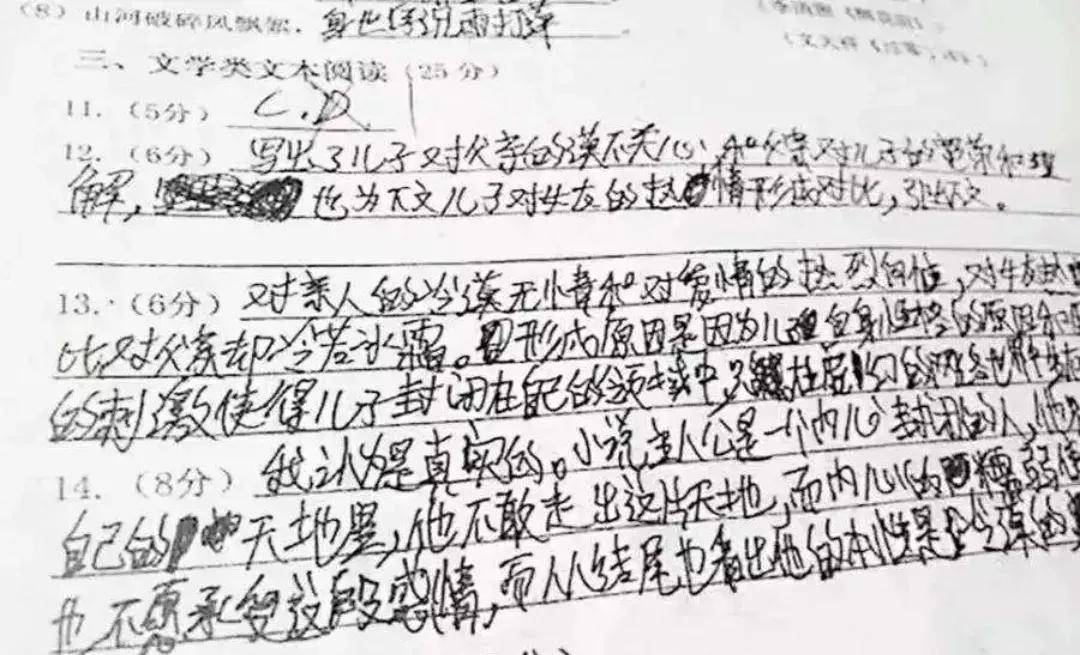 （8）山河破碎风飘絮，身世浮沉雨打萍
三、文学类文本阅读（25分）
11.（5分）C.D
12.（6分）写出了儿子对父亲的漠不关心，和父亲对儿子的宽容和理
解，也为下文儿子对女友的热情形成对比，引出下文。
13.（6分）对亲人的冷漠无情和对爱情的热烈向往，对女友热
比对父亲却冷若冰霜。形成原因是因为儿子自身性格的原因和
的刺激使得儿子封闭在自己的领域中只在虚幻的网络世界
14.（8分）我认为是真实的。小说主人公是一个内心封闭的人，他
自己的天地里，他不敢走出这片天地，而内心的懦弱使
也不愿承受这段感情，而从结尾也看出他的本性是冷漠的